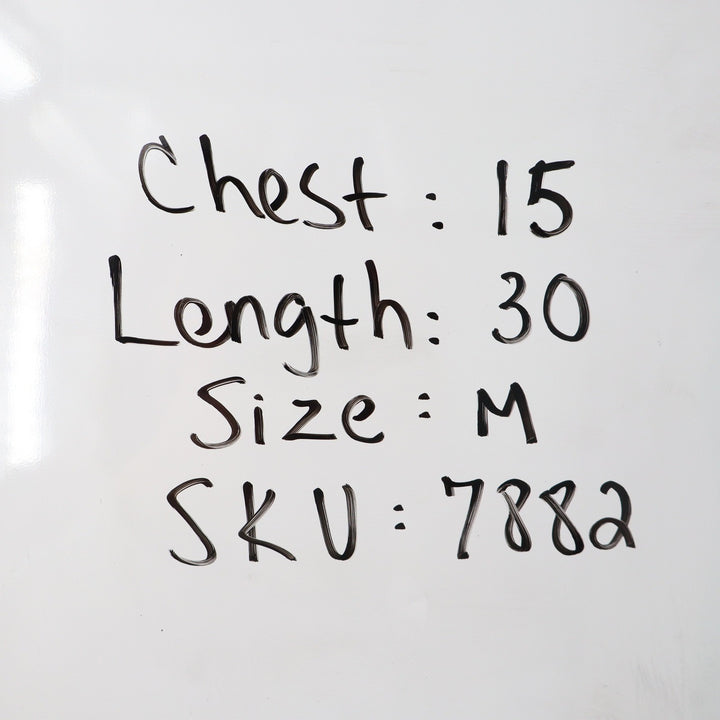 Chest: 15
Length: 30
Size: M
SKU: 7882